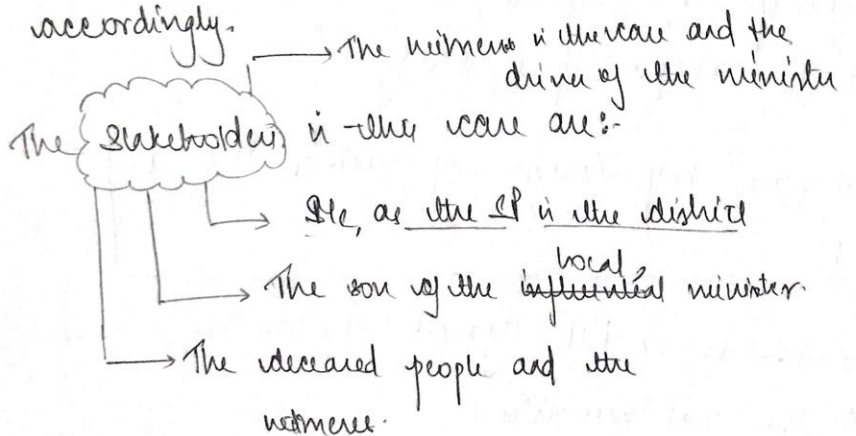 accordingly.
The witness in the case and the
driver of the minister
The stakeholders in this case are:-
Me, as the SP in the district
local,
The son of the influential minister.
The deceased people and the
witness.